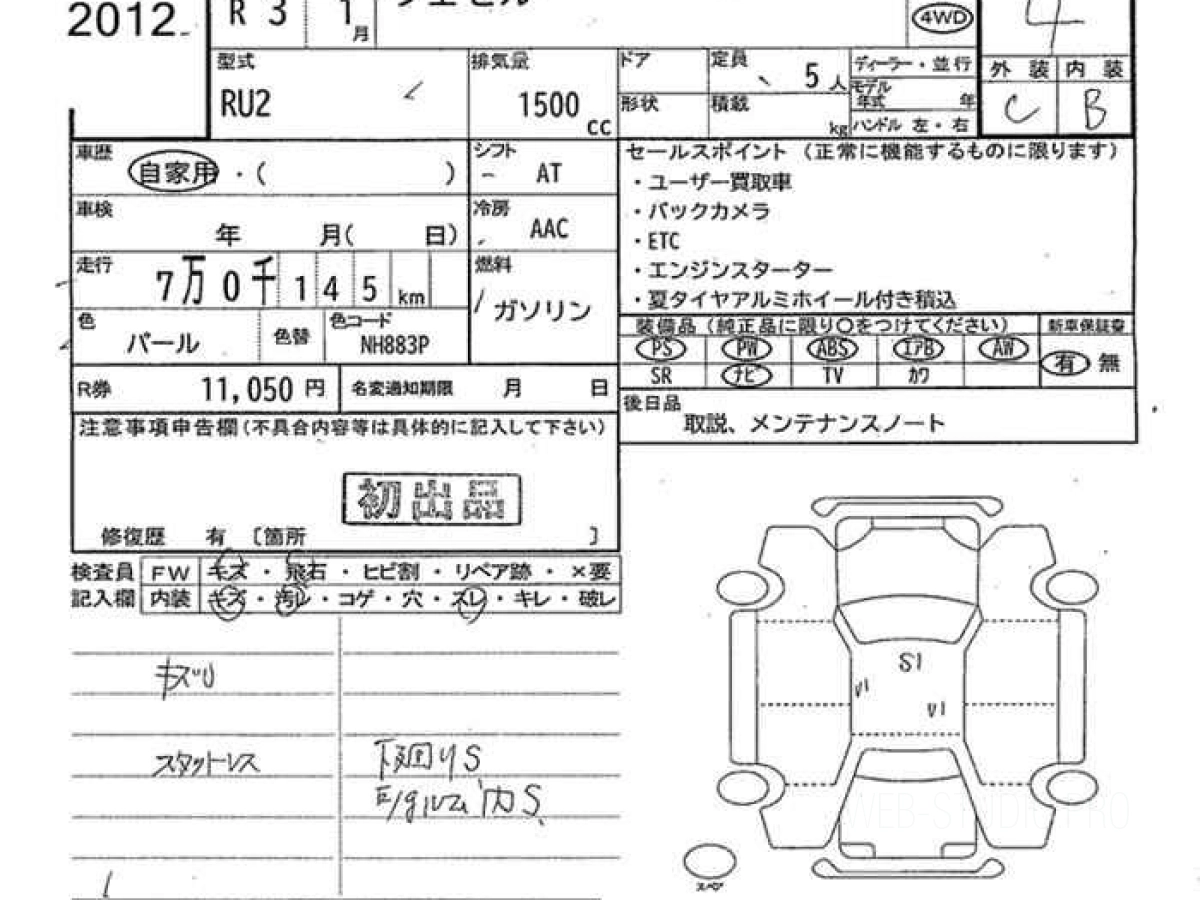 2012
R 3 1月
4WD
4
型式 RU2
排気量 1500 cc
ドア
形状
定員 5人
積載 kg
ディーラー・並行
モデル年式 年
ハンドル 左・右
外装 内装
C B
車歴 自家用・( )
シフト AT
車検 年 月( 日)
冷房 AAC
走行 7万0千145km
燃料 ガソリン
色 パール
色替
色コード NH883P
R券 11,050円
名変通知期限 月 日
セールスポイント (正常に機能するものに限ります)
・ユーザー買取車
・バックカメラ
・ETC
・エンジンスターター
・夏タイヤアルミホイール付き積込
装備品(純正品に限り○をつけてください) 新車保証書
PS PW ABS エアB AW
SR ナビ TV カワ
有 無
後日品
取説、メンテナンスノート
注意事項申告欄(不具合内容等は具体的に記入して下さい)
初出品
修復歴 有 〔箇所 〕
検査員 FW キズ・飛石・ヒビ割・リペア跡・×要
記入欄 内装 キズ・汚レ・コゲ・穴・スレ・キレ・破レ
スタットレス
下廻りS
S1
V1
V1
スペア
WEB-STUDIO.PRO